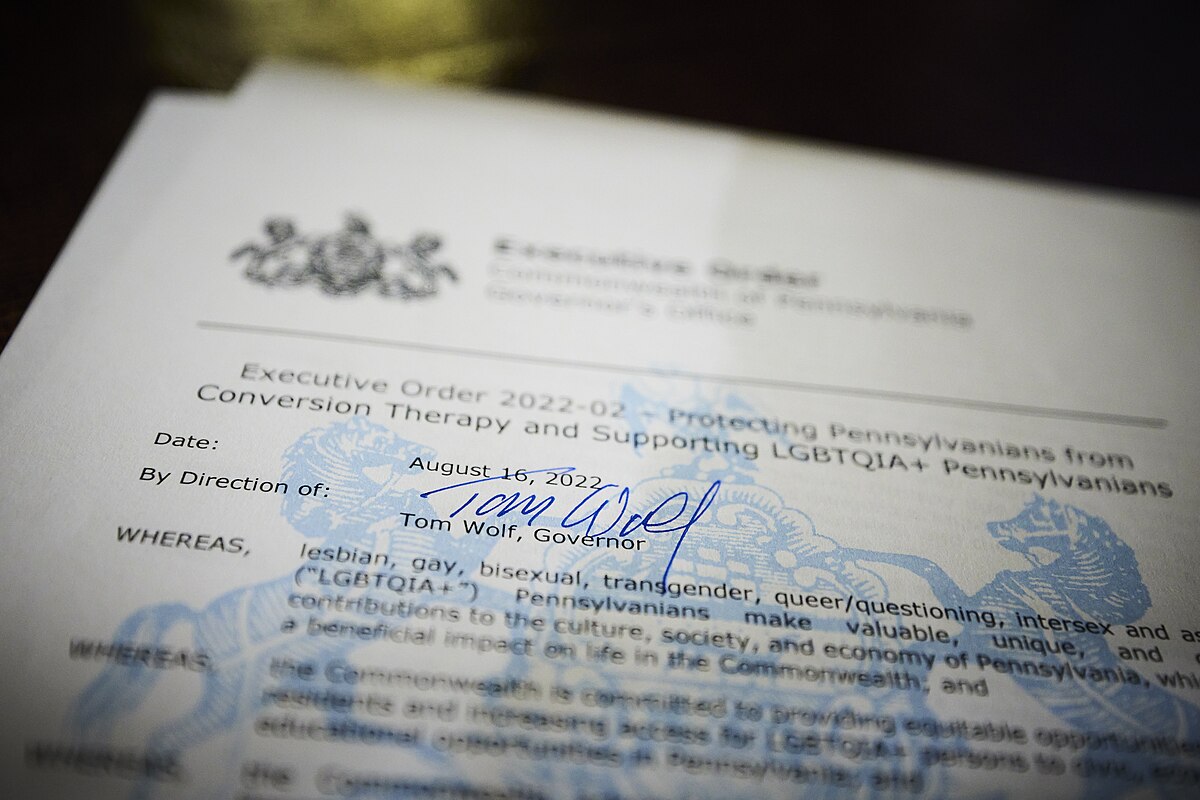 Executive Order
Commonwealth of Pennsylvania
Governor's Office
Executive Order 2022-02 – Protecting Pennsylvanians from
Conversion Therapy and Supporting LGBTQIA+ Pennsylvanians
Date:
August 16, 2022
Tom Wolf
By Direction of:
Tom Wolf, Governor
WHEREAS, lesbian, gay, bisexual, transgender, queer/questioning, intersex and
("LGBTQIA+") Pennsylvanians make valuable, unique, and
contributions to the culture, society, and economy of Pennsylvania,
a beneficial impact on life in the Commonwealth; and
WHEREAS, the Commonwealth is committed to providing equitable opportunities
residents and increasing access for LGBTQIA+ persons to civic,
educational opportunities in Pennsylvania; and
WHEREAS, the Commonwealth